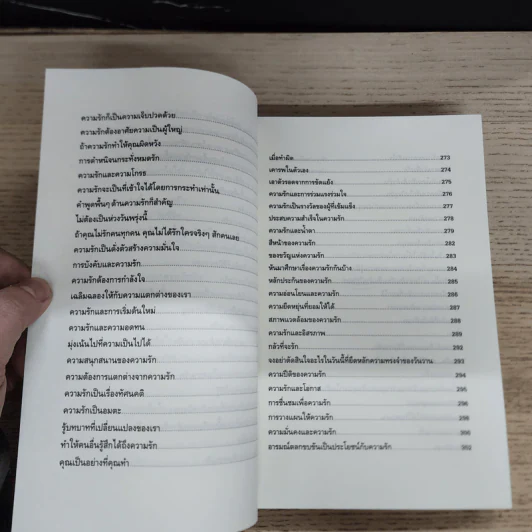 ความรักก็เป็นความเจ็บปวดด้วย
ความรักต้องอาศัยความเป็นผู้ใหญ่
ถ้าความรักทำให้คุณผิดหวัง
การตำหนิจนกระทั่งหมดรัก
ความรักและความโกรธ
ความรักจะเป็นที่เข้าใจได้โดยการกระทำเท่านั้น
คำพูดพื้นๆ ด้านความรักก็สำคัญ
ไม่ต้องเป็นห่วงวันพรุ่งนี้
ถ้าคุณไม่รักคนทุกคน คุณไม่ได้รักใครจริงๆ สักคนเลย
ความรักเป็นดั่งตัวสร้างความมั่นใจ
การบังคับและความรัก
ความรักต้องการกำลังใจ
เฉลิมฉลองให้กับความแตกต่างของเรา
ความรักและการเริ่มต้นใหม่
ความรักและความอดทน
มุ่งเน้นไปที่ความเป็นไปได้
ความสนุกสนานของความรัก
ความต้องการแตกต่างจากความรัก
ความรักเป็นเรื่องทัศนคติ
ความรักเป็นอมตะ
รู้บทบาทที่เปลี่ยนแปลงของเรา
ทำให้คนอื่นรู้สึกได้ถึงความรัก
คุณเป็นอย่างที่คุณทำ
เมื่อทำผิด 273
เคารพในตัวเอง 274
เอาตัวรอดจากการขัดแย้ง 275
ความรักและการร่วมแรงร่วมใจ 276
ความรักเป็นรางวัลของผู้ที่เข้มแข็ง 277
ประสบความสำเร็จในความรัก 278
ความรักและน้ำตา 279
สีหน้าของความรัก 282
ของขวัญแห่งความรัก 283
หันมาศึกษาเรื่องความรักกันบ้าง 284
หลักประกันของความรัก 285
ความอ่อนโยนและความรัก 286
ความยืดหยุ่นที่ยอมให้ได้ 287
สภาพแวดล้อมของความรัก 288
ความรักและอิสรภาพ 289
กลัวที่จะรัก
จงอย่าตัดสินใจอะไรในวันนี้ที่ยึดหลักความทรงจำของวันวาน 293
ความปีติของความรัก 294
ความรักและโอกาส 295
การชื่นชมเพื่อความรัก 296
การวางแผนให้ความรัก
ความมั่นคงและความรัก 300
อารมณ์ตลกขบขันเป็นประโยชน์กับความรัก 302